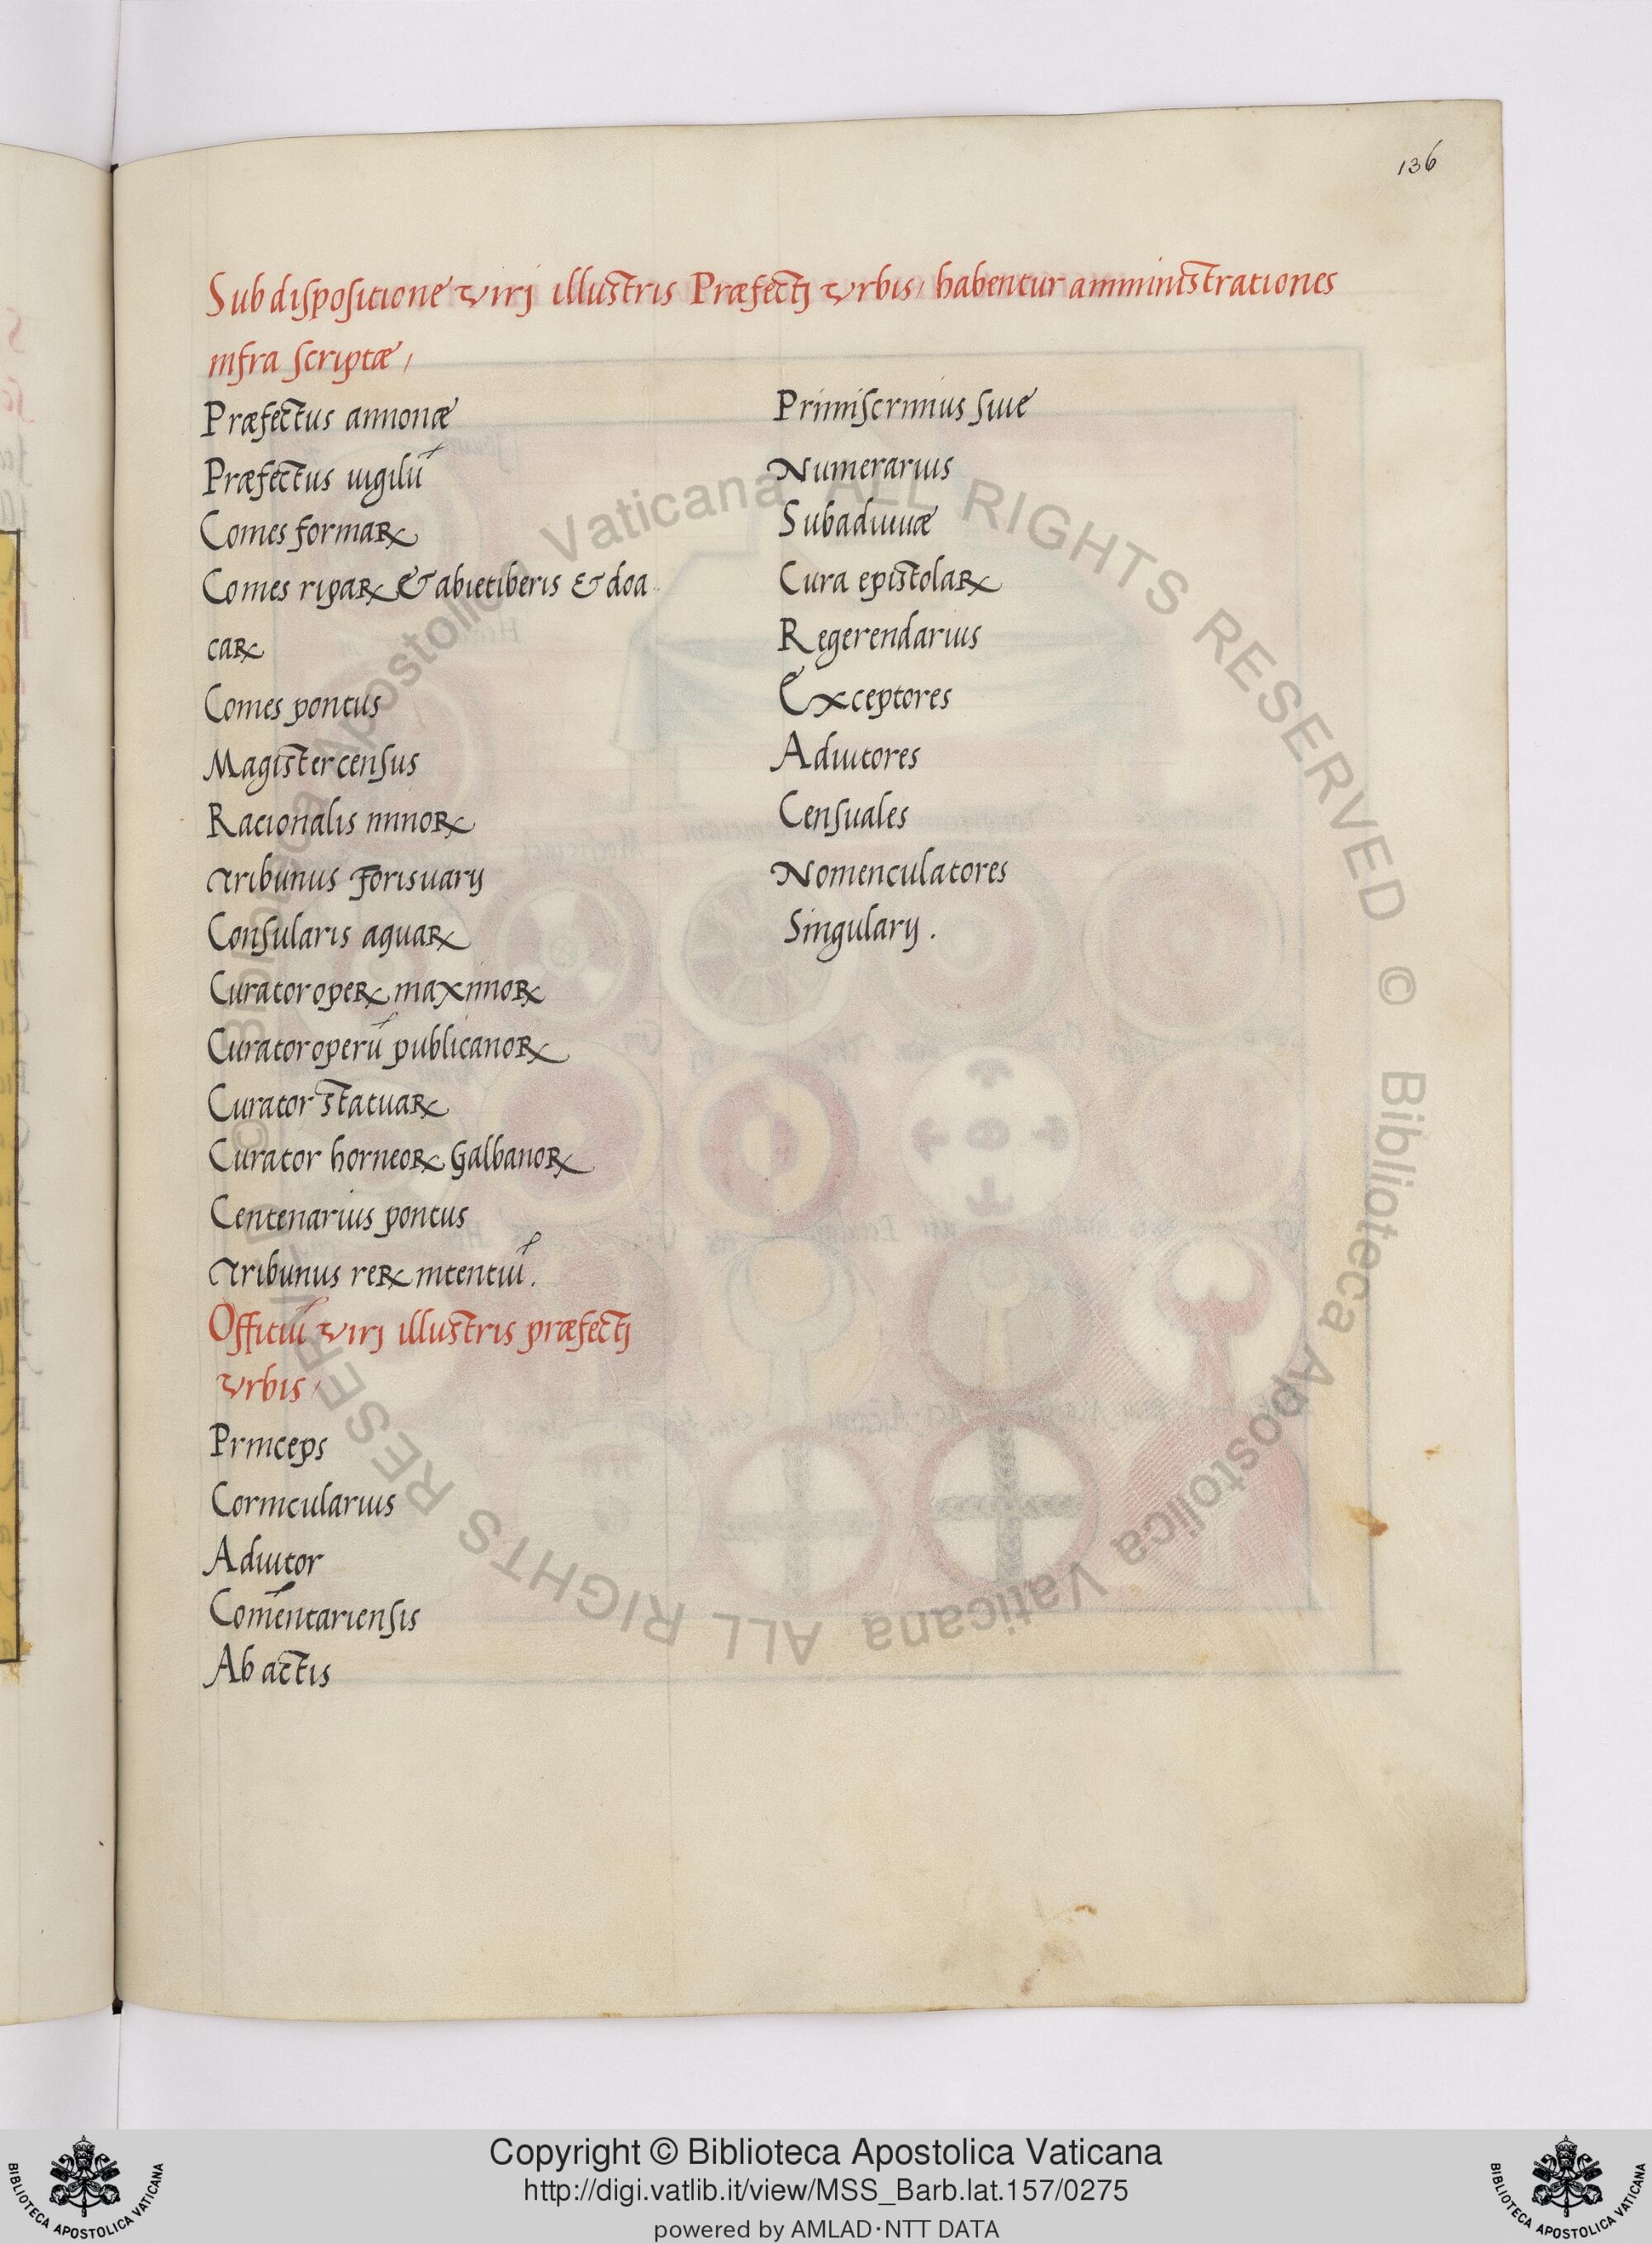 136
Sub dispositione viri illustris Præfecti vrbis, habentur amministrationes
infra scriptæ,
Præfectus annonæ
Præfectus uigilū
Comes formaꝝ
Comes ripaꝝ & abietiberis & doa
caꝝ
Comes pontus
Magister census
Racionalis ninoꝝ
Tribunus Forisuarij
Consularis aquaꝝ
Curator opeꝝ maximoꝝ
Curator operū publicanoꝝ
Curator statuaꝝ
Curator horneoꝝ Galbanoꝝ
Centenarius pontus
Tribunus reꝝ intentiū.
Offitiū viri illustris præfecti
vrbis,
Princeps
Cornicularius
Adiutor
Com̄entariensis
Ab actis
Primiscrinius siue
Numerarius
Subadiuuæ
Cura epistolaꝝ
Regerendarius
Exceptores
Adiutores
Censuales
Nomenculatores
Singularij.
© Biblioteca Apostolica Vaticana ALL RIGHTS RESERVED
© Biblioteca Apostolica Vaticana ALL RIGHTS RESERVED
Copyright © Biblioteca Apostolica Vaticana
http://digi.vatlib.it/view/MSS_Barb.lat.157/0275
powered by AMLAD·NTT DATA
BIBLIOTECA APOSTOLICA VATICANA
BIBLIOTECA APOSTOLICA VATICANA